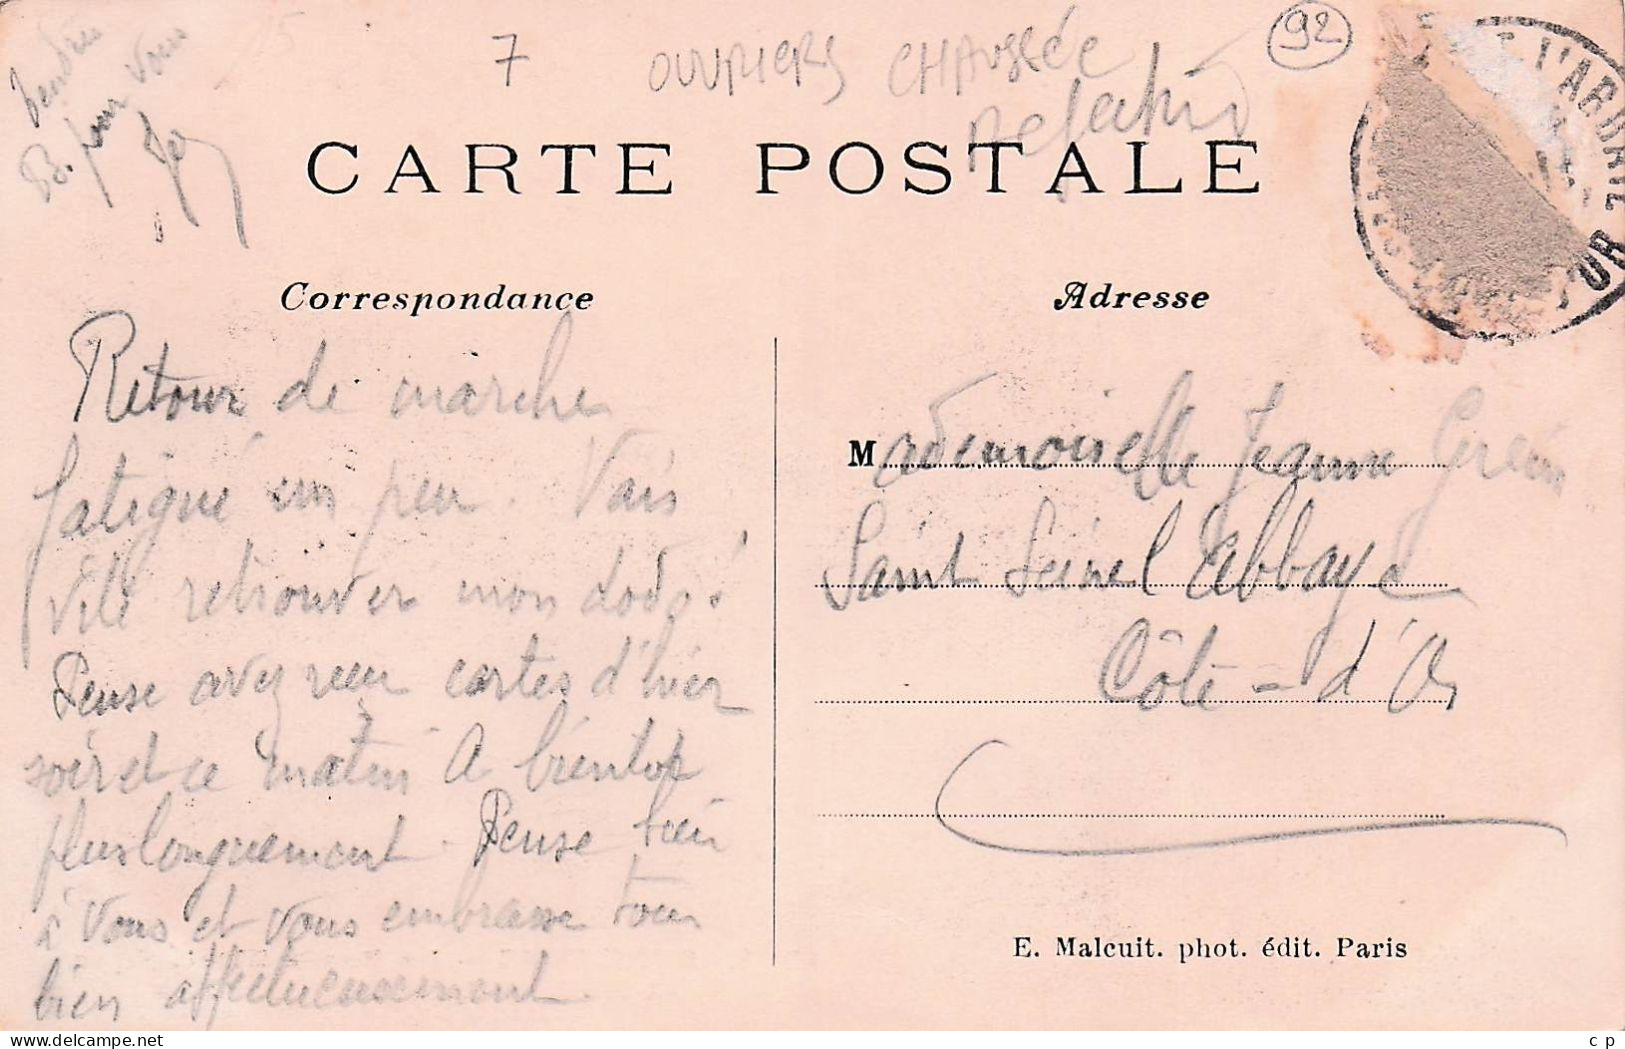 7
OUVRIERS CHAUSSÉE
92
tendre
B. pour vous
CARTE POSTALE
Correspondance
Adresse
Retour de marche
fatigué un peu. Vais
vite retrouver mon dodo!
Pense avez reçu cartes d'hier
soir et ce matin A bientôt
plus longuement. Pense bien
à vous et vous embrasse tous
bien affectueusement.
Mademoiselle Jeanne
Saint Seine l'Abbaye
Côte-d'Or
E. Malcuit. phot. édit. Paris
delcampe.net
c p